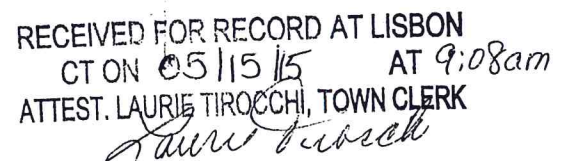 RECEIVED FOR RECORD AT LISBON
CT ON 05/15/15 AT 9:08am
ATTEST. LAURIE TIROCCHI, TOWN CLERK
Laurie Tirocchi